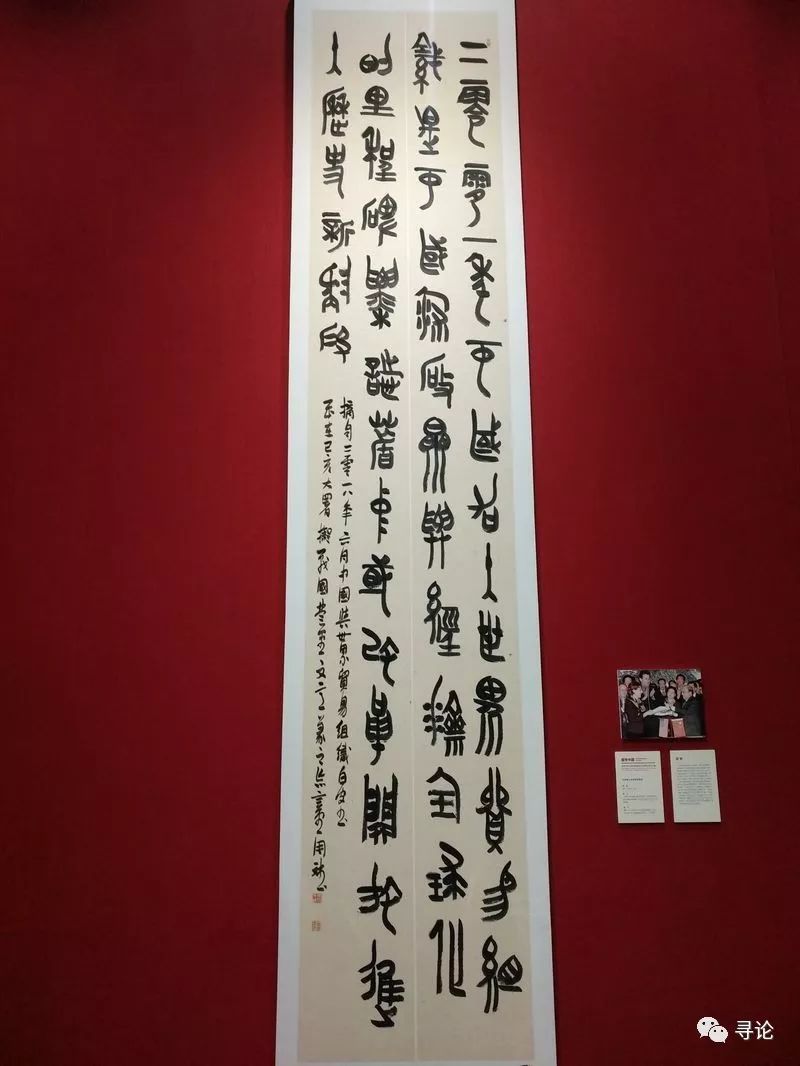 二零零一年中國加入世界貿易組
織是中國深度參與經濟全球化
的里程碑標誌着中國改革開放進
入歷史新階段
摘自二零一八年六月中國與世界貿易組織白皮書
在己亥大暑擬戰國楚
寻论